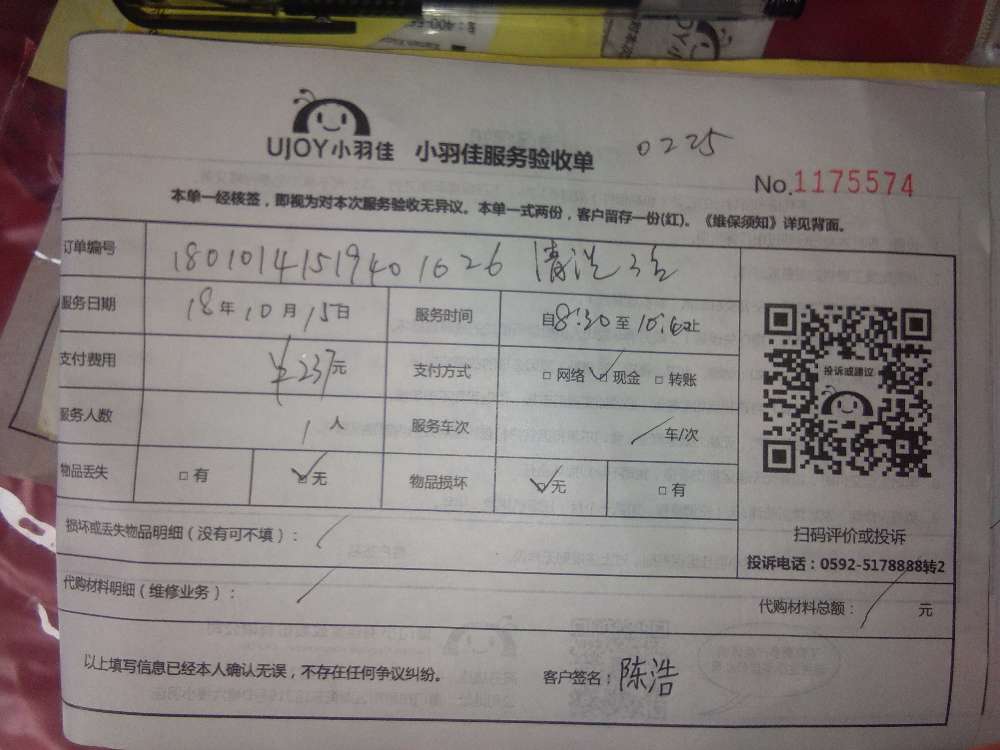 UJOY小羽佳 小羽佳服务验收单 0225
No.1175574
本单一经核签，即视为对本次服务验收无异议。本单一式两份，客户留存一份(红)。《维保须知》详见背面。
订单编号 18010141519401626 清洗3台
服务日期 18年10月15日 服务时间 自8:30至10:40止
支付费用 ¥237元 支付方式 □网络 ☑现金 □转账
服务人数 1人 服务车次 / 车/次
物品丢失 □有 ☑无 物品损坏 ☑无 □有
投诉或建议
扫码评价或投诉
投诉电话：0592-5178888转2
损坏或丢失物品明细（没有可不填）： /
代购材料明细（维修业务）： / 代购材料总额： / 元
以上填写信息已经本人确认无误，不存在任何争议纠纷。 客户签名：陈浩